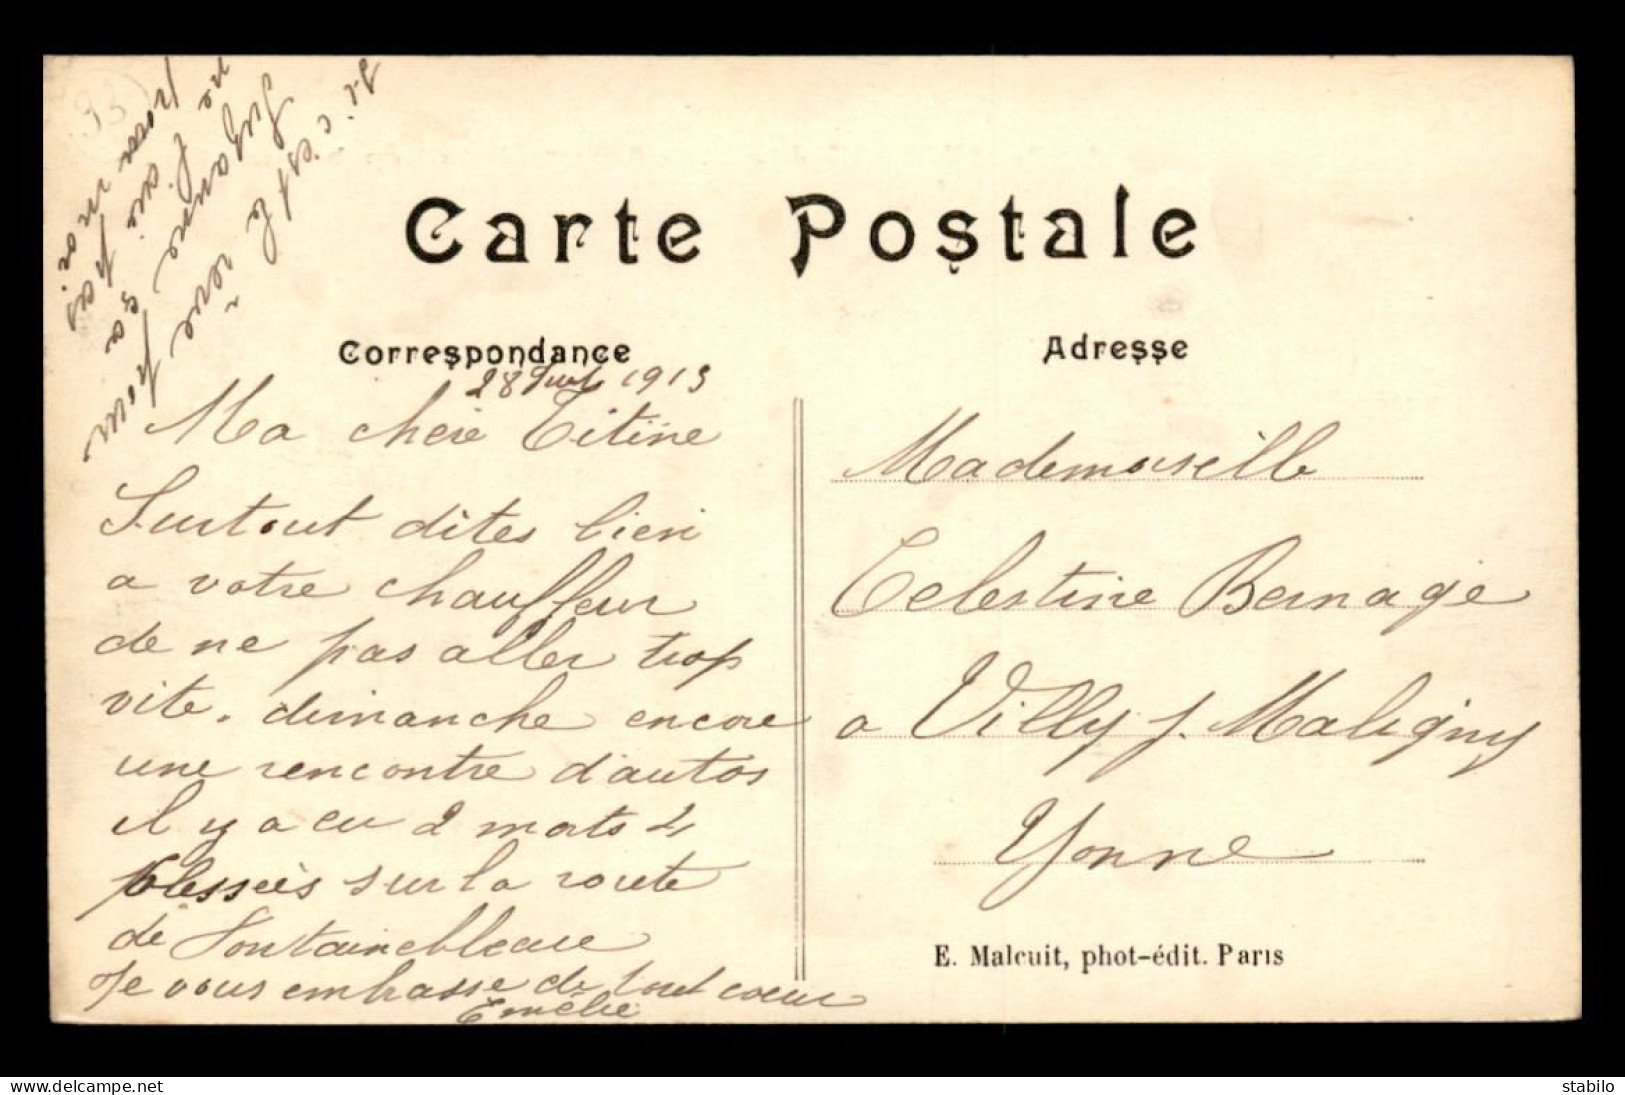 93
si c'est le rêve pour
Suzanne ça
ne f. ais pas
pour moi
Carte Postale
Correspondance
Adresse
28 Juil 1913
Ma chère Titine
Surtout dites bien
a votre chauffeur
de ne pas aller trop
vite. dimanche encore
une rencontre d'autos
il y a eu 2 morts 4
blessés sur la route
de Fontainebleau
Je vous embrasse de tout coeur
Emélie
Mademoiselle
Celestine Bernage
a Villy p. Maligny
Yonne
E. Malcuit, phot-édit. Paris
www.delcampe.net
stabilo